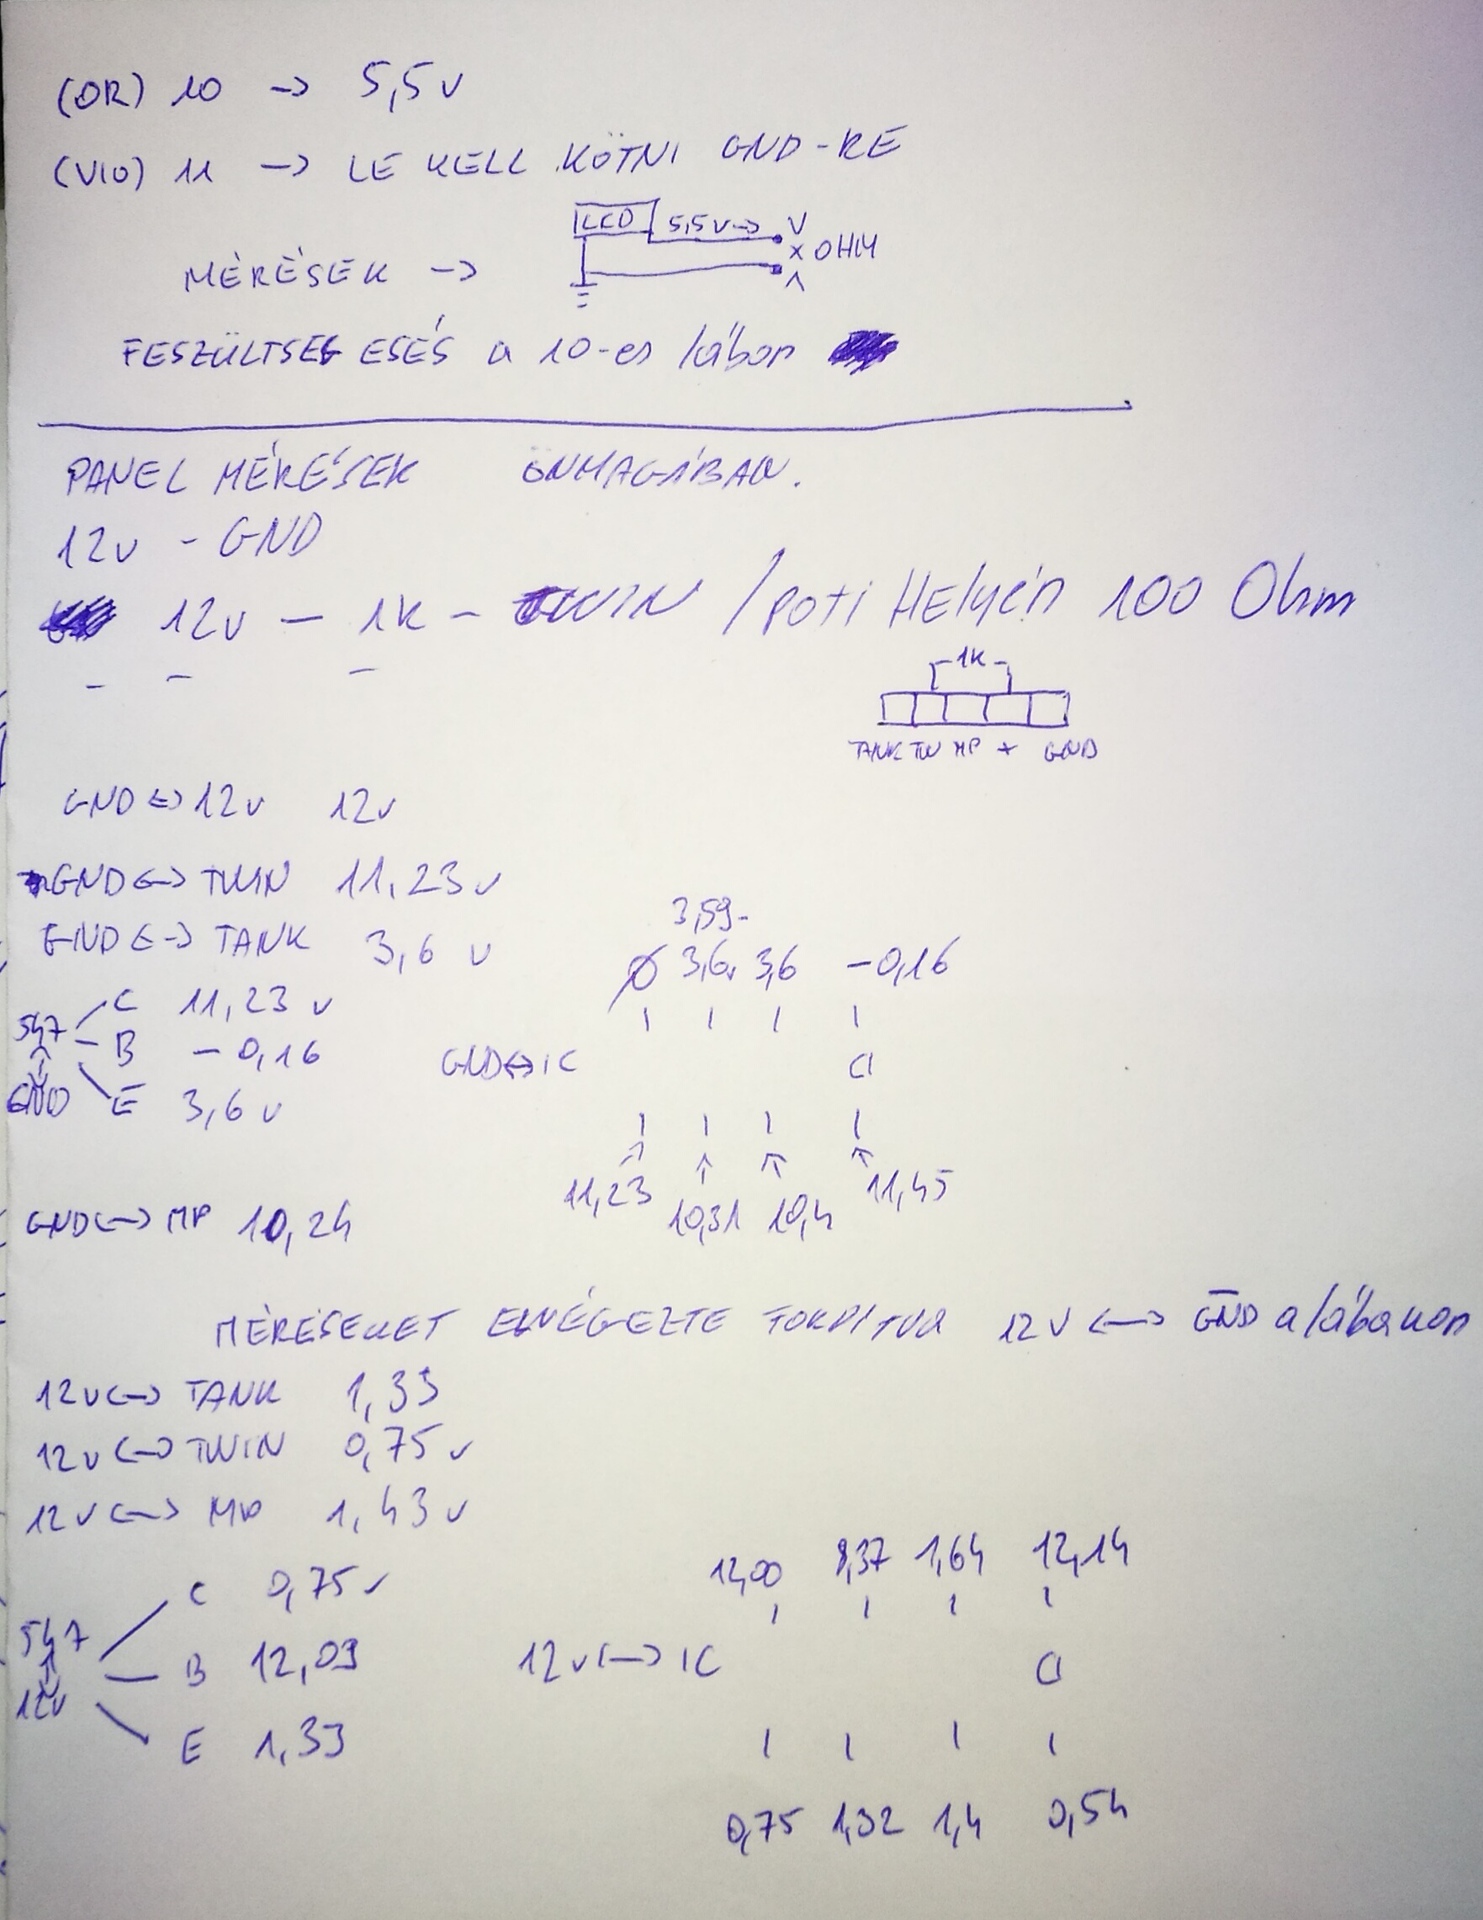 (OR) 10 -> 5,5v
(VIO) 11 -> LE KELL KÖTNI GND-RE
LCD 5,5v-> V
X OHM
MÉRÉSEK ->
FESZÜLTSEG ESÉS a 10-es lábon
PANEL MÉRÉSEK ÖNMAGÁBAN.
12v - GND
12v - 1K - TWIN / poti HElyén 100 Ohm
1K
TANK TW MP + GND
GND <-> 12v 12v
GND <-> TWIN 11,23v
GND <-> TANK 3,6 v
3,59-
Ø 3,6v 3,6 -0,16
547 C 11,23 v
B -0,16
GND E 3,6 v
GND<->IC
11,23 10,31 10,4 11,45
GND<-> MP 10,24
MÉRÉSEKET ELVÉGEZTE FORDÍTVA 12V <-> GND a lábakon
12v<-> TANK 1,33
12v <-> TWIN 0,75v
12v <-> MP 1,43v
12,00 8,37 1,64 12,14
547 C 0,75v
12v B 12,09
E 1,33
12v<-> IC
0,75 1,32 1,4 0,54